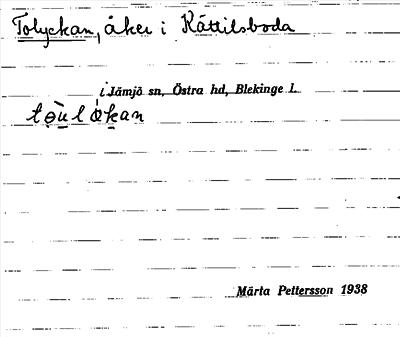 Tolyckan, åker i Kättilsboda
i Jämjö sn, Östra hd, Blekinge l.
Märta Pettersson 1938